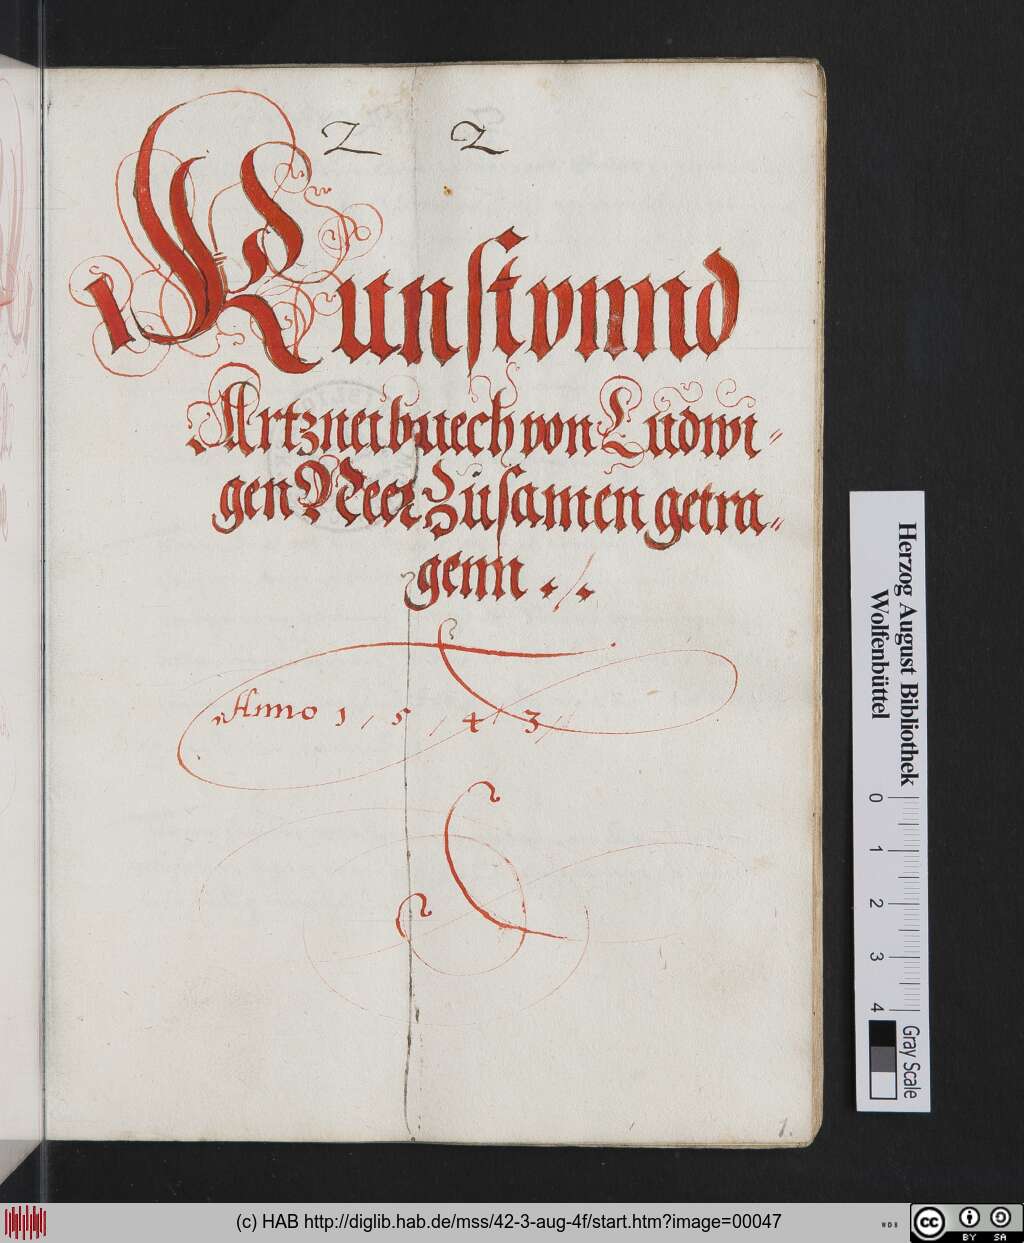 2 2
Kunst vnnd
Artzneibuech von Ludwi⸗
gen Neer Zusamen getra⸗
genn ./.
Anno 1 / 5 / 4 / 3 //
1.
Herzog August Bibliothek
Wolfenbüttel
0 1 2 3 4
Gray Scale
(c) HAB http://diglib.hab.de/mss/42-3-aug-4f/start.htm?image=00047
WDB
cc BY SA